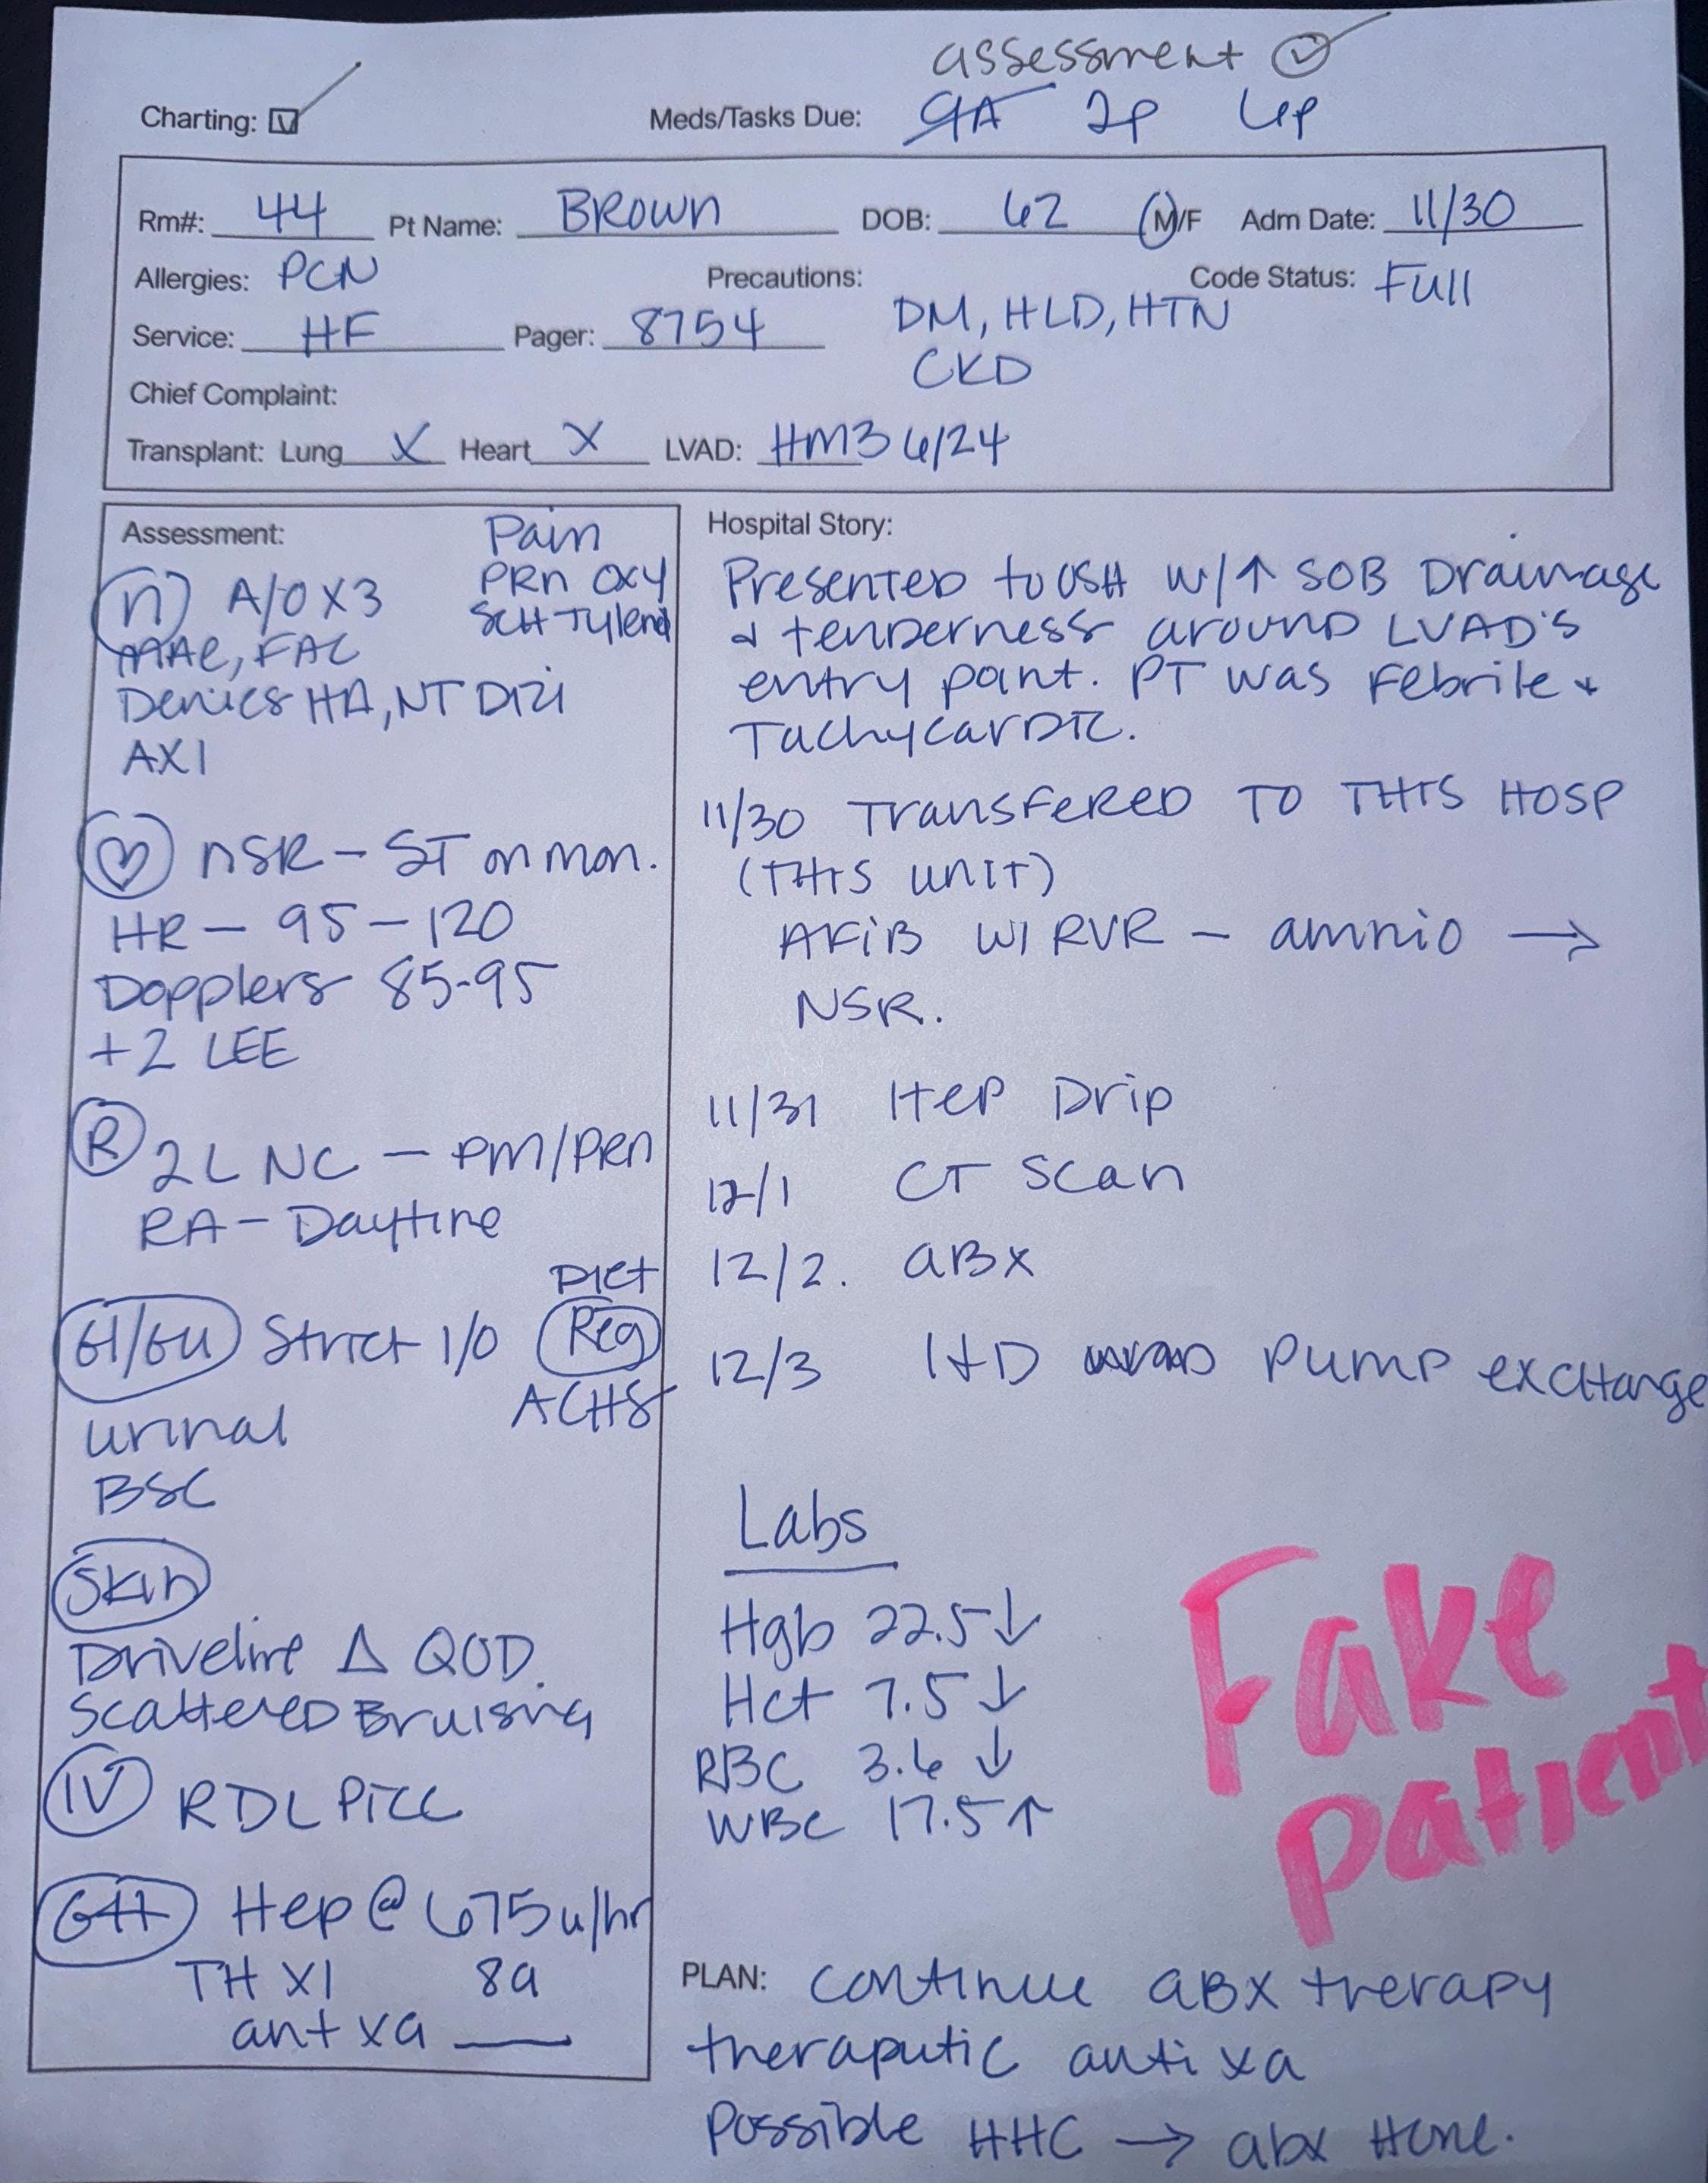 assessment ✓
Charting: ☑ Meds/Tasks Due: 9A 2p 6p
Rm#: 44 Pt Name: Brown DOB: 62 M/F Adm Date: 11/30
Allergies: PCN Precautions: Code Status: Full
Service: HF Pager: 8754 DM, HLD, HTN
CKD
Chief Complaint:
Transplant: Lung X Heart X LVAD: HM3 6/24
Assessment: Pain
PRN OXY
SCH Tylenol
n A/O X3
MAE, FAC
Denies HA, NT DIZI
AX1
♡ NSR - ST on mon.
HR - 95 - 120
Dopplers 85-95
+2 LEE
R 2L NC - PM/PRN
RA - Daytime
Diet
GI/GU Strict I/O Reg
ACHS
urinal
BSC
Skin
Driveline Δ QOD.
Scattered Bruising
IV RDL PICC
Gtt Hep @ 675 u/hr
TH X1 8a
ant xa ___
Hospital Story:
Presented to OSH w/↑ SOB Drainage
& tenderness around LVAD's
entry point. PT was Febrile &
Tachycardic.
11/30 Transfered TO THIS HOSP
(THIS UNIT)
AFIB W/ RVR - amnio →
NSR.
11/31 Hep Drip
12/1 CT Scan
12/2. ABX
12/3 I+D Pump exchange
Labs
Hgb 22.5 ↓
Hct 7.5 ↓
RBC 3.6 ↓
WBC 17.5 ↑
Fake
patient
PLAN: continue ABX therapy
theraputic anti xa
Possible HHC → abx Home.